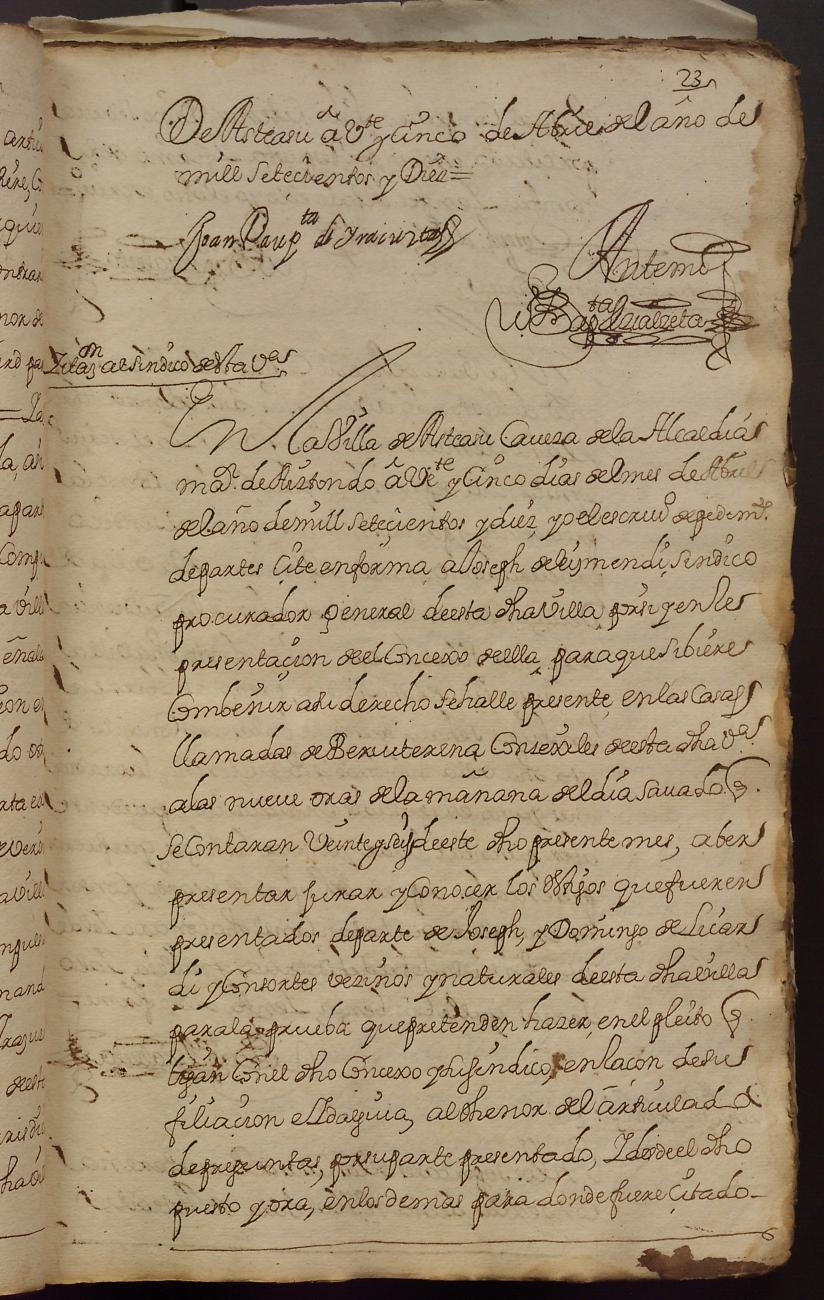 23
De Asteasu â Vte y Cinco de Abril del año de
mill Setecientos y Diez=
Joan Baupta de Yraciortas
Antemi
Bapta de Elzialzeta
Zitaon al Sindico desta Va
En la Villa de Asteasu Caveza de la Alcaldia
maor de Aiztondo â Vte y Cinco dias del mes de Abril
del año de mill Setecientos y diez yo el escriuo de pedimto
de partes Cite en forma a Joseph de Eymendi, Sindico
procurador general de esta dha Villa por si y en Re
presentacion del Concexo de ella, para que si biere
Combenir a su derecho se halle presente, en las Casas
llamadas de Beruiterena Conzexiles de esta dha Va
a las nueve oras de la mañana del dia Savado q.
se Contaran Veinte y seis de este dho presente mes, a ber
presentar jurar y Conocer los tstigos que fueren
presentados de parte de Joseph, y Domingo de Licar
di y Consortes vezinos y naturales de esta dha Villa
para la prueba que pretenden hazer, en el pleito q.
tigan Con el dho Concexo y su sindico, en racon de su
filiacion e Ydalguia, al thenor del articulado
de preguntas, por su parte presentado, Y desde el dho
puesto y ora, en los demas para donde fuere Citado